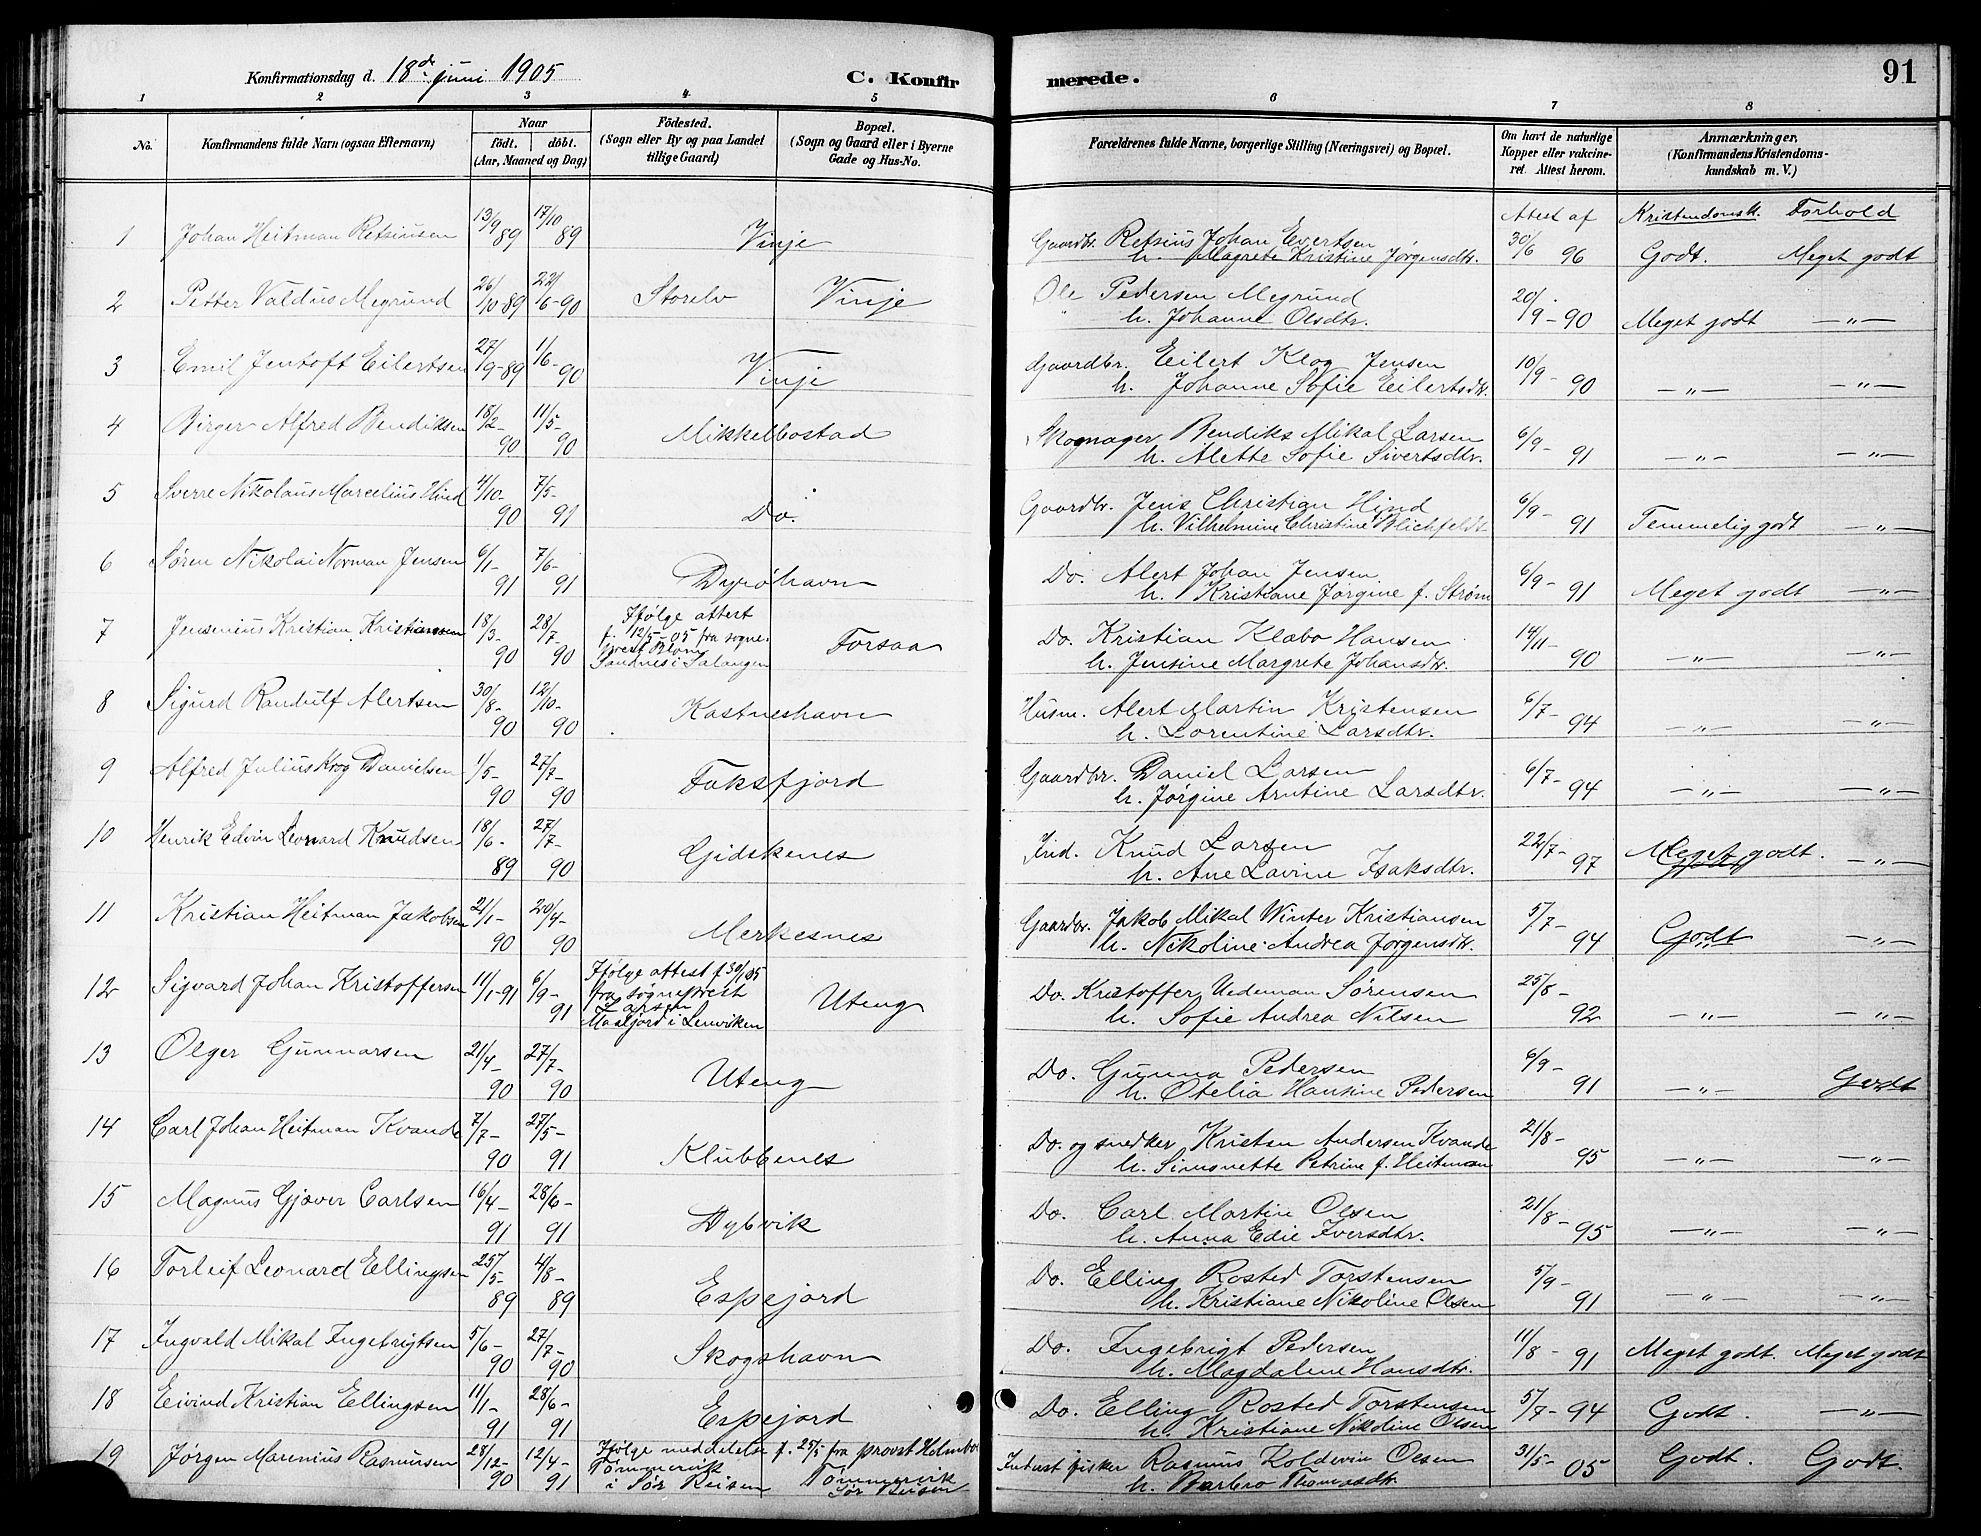 Konfirmationsdag d. 18de juni 1905
C. Konfir
merede.
91
1 2 3 4 5 6 7 8
No.
Konfirmandens fulde Navn (ogsaa Efternavn)
Naar
födt. döbt.
(Aar, Maaned og Dag)
Födested.
(Sogn eller By og paa Landet
tillige Gaard)
Bopæl.
(Sogn og Gaard eller i Byerne
Gade og Hus-No.
Forældrenes fulde Navne, borgerlige Stilling (Næringsvei) og Bopæl.
Om havt de naturlige
Kopper eller vakcine-
ret. Attest herom.
Anmærkninger,
(Konfirmandens Kristendoms-
kundskab m. V.)
Attest af Kristendomsk. Forhold
1 Johan Heitman Retsiusen 13/9 89 17/10 89 Vinje Gaardbr. Retsius Johan Evertsen
h. Magrete Kristine Jørgensdtr. 30/6 96 Godt. Meget godt
2 Petter Valdus Megrund 26/10-89 22/6-90 Storelv Vinje Ole Pedersen Megrund
" h. Johanne Olsdtr. 20/9-90 Meget godt —"—
3 Emil Jentoft Eilertsen 27/9-89 1/6-90 Vinje Gaardbr. Eilert Klog Jensen
h. Johanne Sofie Eilertsdtr. 10/9-90 —"— —"—
4 Birger Alfred Bendiksen 18/2-90 11/5-90 Mikkelbostad Skognager Bendiks Mikal Larsen
h. Alette Sofie Sivertsdtr. 6/9-91 —"— —"—
5 Sverre Nikolaus Marcelius Hind 4/10-90 7/5-91 Do. Gaardbr. Jens Christian Hind
h. Vilhelmine Christine Blichfeldt 6/9-91 Temmelig godt —"—
6 Søren Nikolai Norman Jensen 6/1-91 7/6-91 Dyröhavn Do. Alert Johan Jensen
h. Kristiane Jørgine f. Strøm 6/9-91 Meget godt —"—
7 Jensenius Kristian Kristiansen 18/3-90 28/7-90 Ifölge attest
f. 12/5-05 fra sogne-
prest Blom
Sandnes i Salangen Forsaa Do. Kristian Klæbo Hansen
h. Jensine Margrete Johansdtr. 14/11-90 —"— —"—
8 Sigurd Randulf Alertsen 30/8-90 12/10-90 Kastneshavn Husm. Alert Martin Kristensen
h. Lorentine Larsdtr. 6/7-94 —"— —"—
9 Alfred Julius Krog Danielsen 1/5-90 27/7-90 Faksfjord Gaardbr. Daniel Larsen
h. Jørgine Arntine Larsdtr. 6/7-94 —"— —"—
10 Henrik Edvin Leonard Knudsen 18/6-89 27/7-90 Gidskenes Ind. Knud Larsen
h. Ane Lavine Isaksdtr. 22/7-97 Meget godt. —"—
11 Kristian Heitman Jakobsen 21/1-90 20/4-90 Merkesnes Gaardbr. Jakob Mikal Winter Kristiansen
h. Nikoline Andrea Jørgensdtr. 5/7-94 Godt —"—
12 Sigvard Johan Kristoffersen 11/1-91 6/9-91 Ifölge attest f 30/1 05
fra sogneprest
Larsen
Maalfjord i Lenviken Uteng Do. Kristoffer Uedeman Sørensen
h. Sofie Andrea Nilsen 25/8-92 —"— —"—
13 Olger Gunnarsen 21/4-90 27/7-90 Uteng Do. Gunna Pedersen
h. Otelia Hansine Pedersen 6/9-91 —"— Godt
14 Carl Johan Heitman Kvande 7/7-90 27/5-91 Klubbenes Do. og snedker Kristen Andersen Kvande
h. Simonette Petrine f. Heitman 21/8-95 —"— —"—
15 Magnus Gjæver Carlsen 16/4-91 28/6-91 Dybvik Do. Carl Martin Olsen
h. Anna Edie Iversdtr. 21/8-95 —"— —"—
16 Torleif Leonard Ellingsen 25/5-89 4/8-89 Espejord Do. Elling Rosted Torstensen
h. Kristiane Nikoline Olsen 5/9-91 —"— —"—
17 Ingvald Mikal Ingebrigtsen 5/6-90 27/7-90 Skogshavn Do. Ingebrigt Pedersen
h. Magdalene Hansdtr. 11/8-91 Meget godt. Meget godt
18 Eivind Kristian Ellingsen 11/1-91 28/6-91 Espejord Do. Elling Rosted Torstensen
h. Kristiane Nikoline Olsen 5/7-94 Godt. —"—
19 Jørgen Marenius Rasmusen 28/12-90 12/4-91 Ifölge meddelelse f. 25/5 fra provst Holmboe
Tömmervik
i Sör Reisen Tömmervik
Sör Reisen Inderst fisker Rasmus Koldevin Olsen
h. Barbro Thomasdtr. 31/5-05 Godt. Godt.